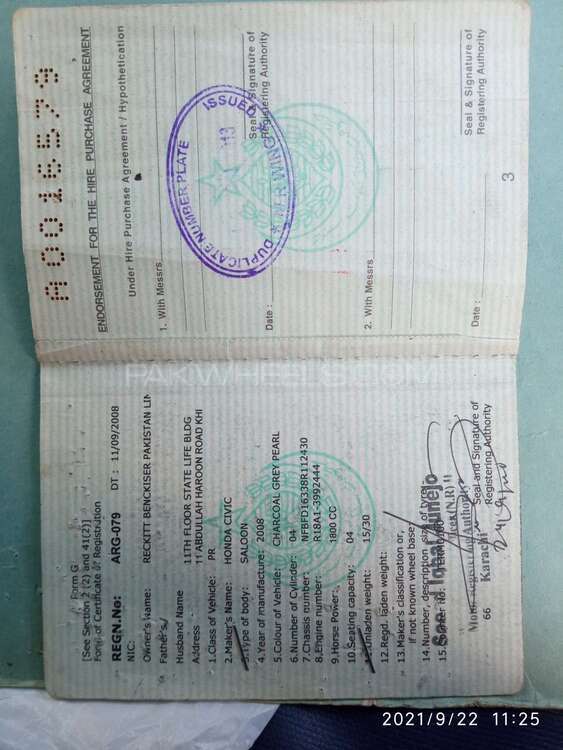 A0016579
ENDORSEMENT FOR THE HIRE PURCHASE AGREEMENT
Under Hire Purchase Agreement / Hypothetication
1. With Messrs
Date :
Seal & Signature of
Registering Authority
ISSUED
DUPLICATE NUMBER PLATE
WING
2. With Messrs
Date :
Seal & Signature of
Registering Authority
3
PAKWHEELS.COM
Form G
[See Section 2 (2) and 41(2)]
Form of Certificate of Registration
REGN.No: ARG-079 DT : 11/09/2008
NIC:
Owner's Name: RECKITT BENCKISER PAKISTAN LIM
Father's/
Husband Name
Address 11TH FLOOR STATE LIFE BLDG
11 ABDULLAH HAROON ROAD KHI
1.Class of Vehicle: PR
2.Maker's Name: HONDA CIVIC
3.Type of body: SALOON
4.Year of manufacture: 2008
5.Colour of Vehicle: CHARCOAL GREY PEARL
6.Number of Cylinder: 04
7.Chassis number: NFBFD16338R112430
8.Engine number: R18A1-3992444
9.Horse Power: 1800 CC
10.Seating capacity: 04
11.Unladen weight: 15/30
12.Regd. laden weight:
13.Maker's classification or,
if not known wheel base
14.Number, description, size of
Motor Registering Authority
Karachi
Seal and Signature of
Registering Authority
66
2021/9/22 11:25